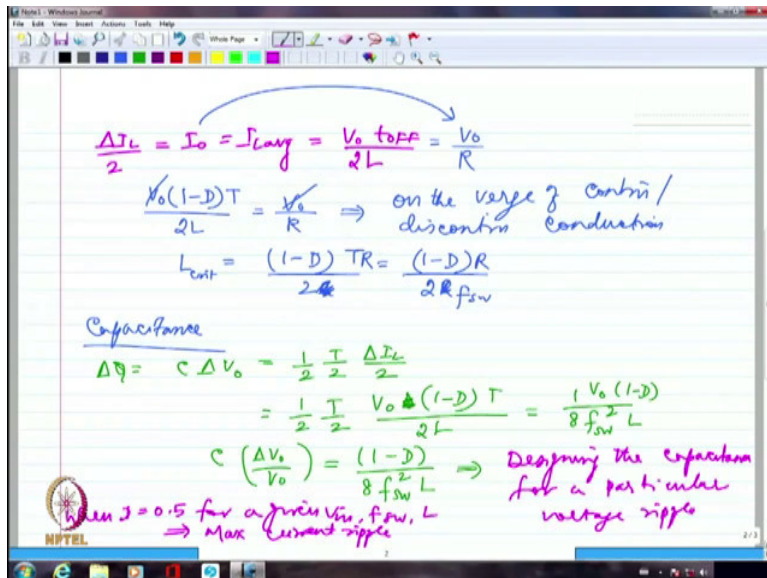 Note1 - Windows Journal
File Edit View Insert Actions Tools Help
Whole Page
B I
ΔI_L/2 = I_o = I_Lavg = V_o t_OFF/2L = V_o/R
V_o(1-D)T/2L = V_o/R ⇒ on the verge of contin/
discontin conduction
L_crit = (1-D) TR/2 = (1-D)R/2 f_sw
Capacitance
Δq = C ΔV_o = 1/2 T/2 ΔI_L/2
= 1/2 T/2 V_o (1-D) T/2L = 1 V_o (1-D)/8 f_sw² L
C (ΔV_o/V_o) = (1-D)/8 f_sw² L ⇒ Designing the capacitance
for a particular
voltage ripple
when D = 0.5 for a given Vin, f_sw, L
⇒ Max current ripple
NPTEL
2/3
2